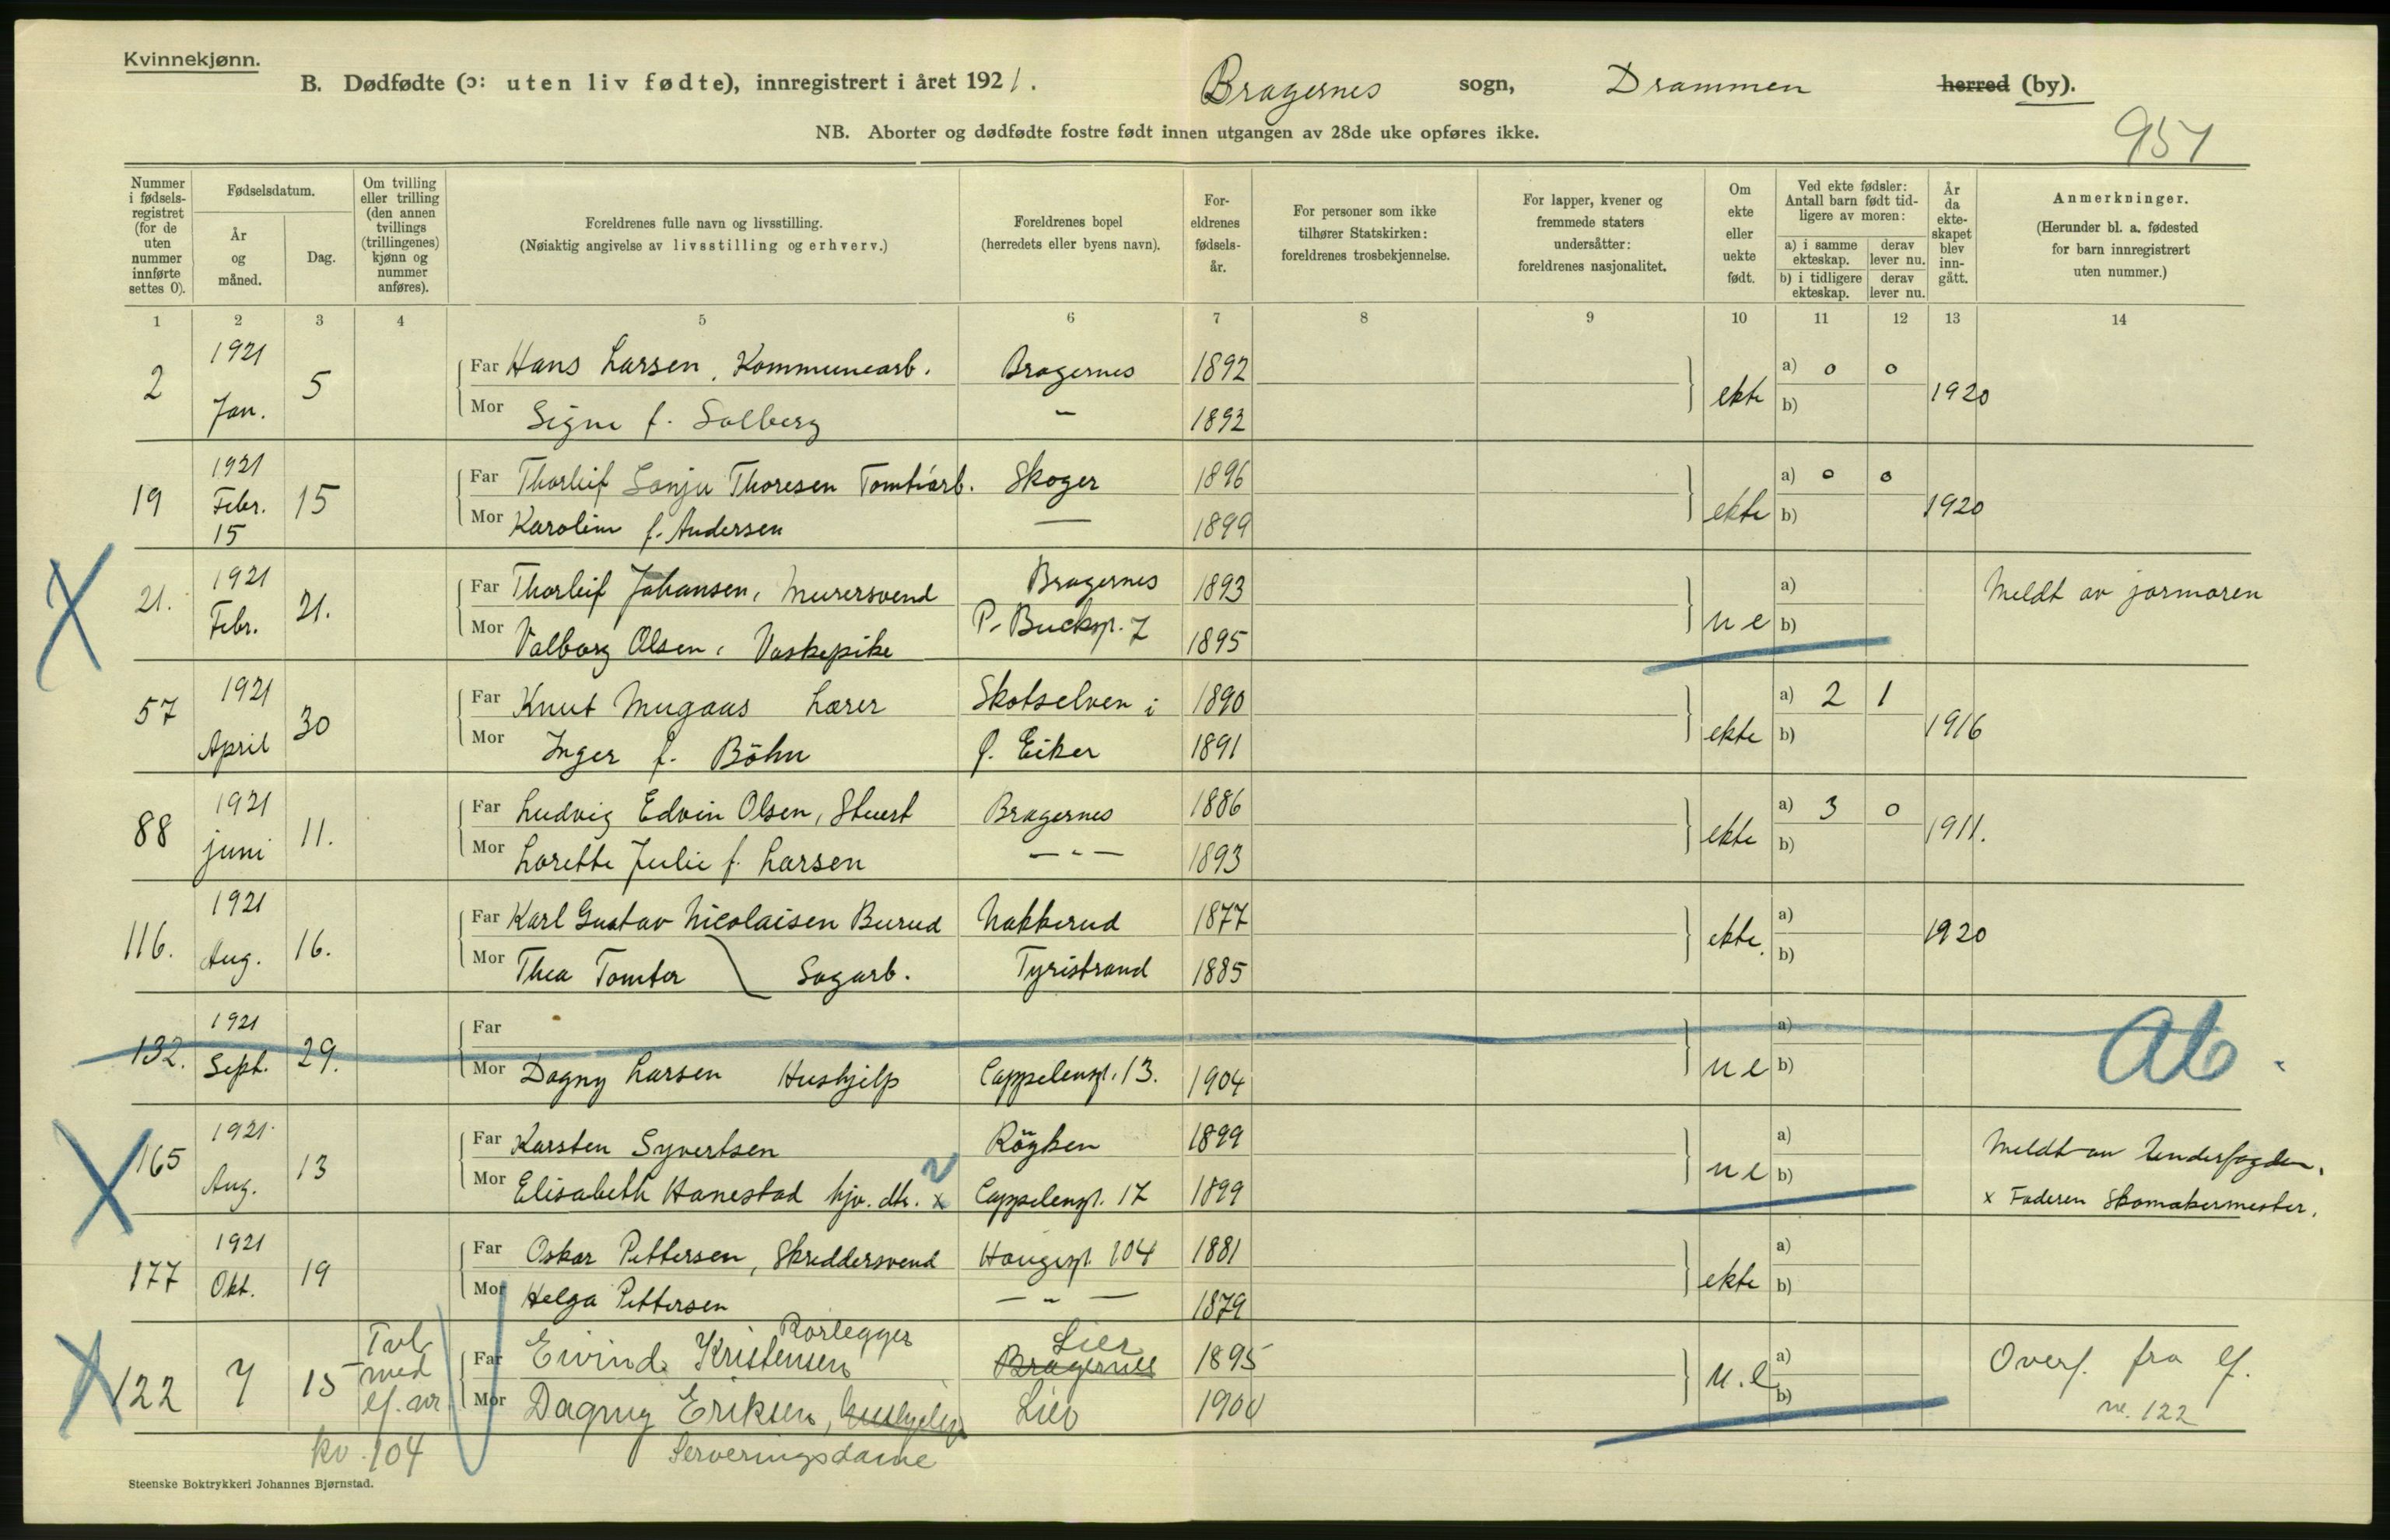 Kvinnekjønn.
B. Dødfødte (ɔ: uten liv fødte), innregistrert i året 1921. Bragernes sogn, Drammen herred (by).
NB. Aborter og dødfødte fostre født innen utgangen av 28de uke opføres ikke.
957
Nummer i fødsels-registret (for de uten nummer innførte settes 0).
Fødselsdatum.
År og måned.
Dag.
Om tvilling eller trilling (den annen tvillings (trillingenes) kjønn og nummer anføres).
Foreldrenes fulle navn og livsstilling.
(Nøiaktig angivelse av livsstilling og erhverv.)
Foreldrenes bopel
(herredets eller byens navn).
For-eldrenes fødsels-år.
For personer som ikke tilhører Statskirken: foreldrenes trosbekjennelse.
For lapper, kvener og fremmede staters undersåtter: foreldrenes nasjonalitet.
Om ekte eller uekte født.
Ved ekte fødsler: Antall barn født tid-ligere av moren:
a) i samme ekteskap. derav lever nu.
b) i tidligere ekteskap. derav lever nu.
År da ekte-skapet blev inn-gått.
Anmerkninger.
(Herunder bl. a. fødested for barn innregistrert uten nummer.)
1 2 3 4 5 6 7 8 9 10 11 12 13 14
2 1921 Jan. 5 Far Hans Larsen, Kommunearb. Bragernes 1892 ekte a) 0 0 1920
Mor Signe f. Solberg — 1892 b)
19 1921 Febr. 15 15 Far Thorleif Thoresen Tomtearb. Skoger 1896 ekte a) 0 0 1920
Mor Karoline f. Andersen — 1899 b)
21. 1921 Febr. 21. Far Thorleif Johansen, Murersvend Bragernes 1893 u e a) Meldt av jormoren
Mor Valborg Olsen, Vaskepike P. Bucksp. 7 1895 b)
57 1921 April 30 Far Knut Mugaas Lærer Skotselven i 1890 ekte a) 2 1 1916
Mor Inger f. Böhn Ø. Eiker 1891 b)
88 1921 juni 11. Far Ludvig Edvin Olsen, Stuert Bragernes 1886 ekte a) 3 0 1911.
Mor Lorette Julie f. Larsen — " — 1893 b)
116. 1921 Aug. 16. Far Karl Gustav Nicolaisen Burud Nakkerud 1877 ekte. a) 1920
Mor Thea Tomter Sagarb. Tyristrand 1885 b)
132. 1921 Sept. 29. Far a) Ab.
Mor Dagny Larsen Hushjelp Cappelensgt. 13. 1904 u e b)
165 1921 Aug. 13 Far Karsten Syvertsen Röyken 1899 u e a) Meldt av Underfogden.
Mor Elisabeth Hanestad hjv. dtr. x 2 Cappelensgt. 17 1899 b) x Faderen Skomakermester.
177 1921 Okt. 19 Far Oskar Pettersen, Skreddersvend Haugesgt. 104 1881 ekte a)
Mor Helga Pettersen — " — 1879 b)
Rørlegger
122 7 15 Tvl. med lf. nr. Far Eivind Kristensen Lier Bragernes 1895 u.e a) Overf. fra lf.
Mor Dagny Eriksen, Hushjelp Lier 1900 b) nr. 122
kv. 104 Serveringsdame
Steenske Boktrykkeri Johannes Bjørnstad.